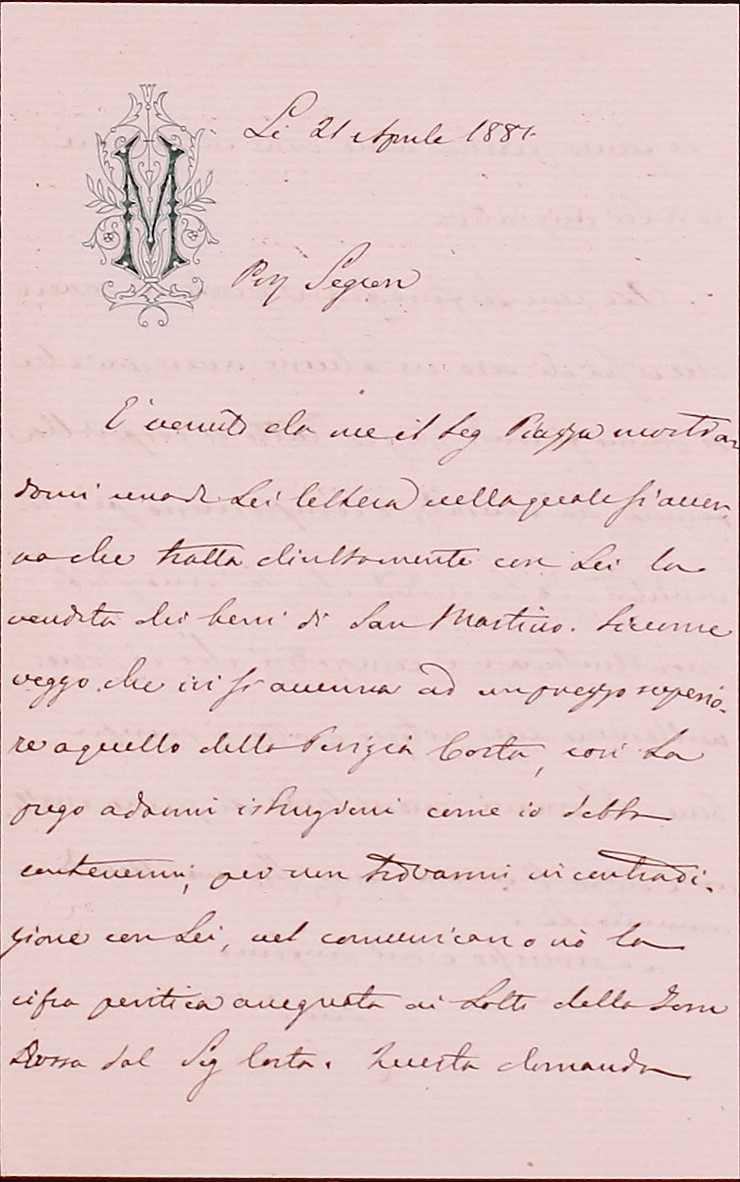 M
Li 21 Aprile 1881
Preg Signore
E' venuto da me il Sig Piazza mostran
domi una di Lei lettera nella quale si accen
na che tratta direttamente con Lei la
vendita dei beni di San Martino. Siccome
veggo che ivi si accenna ad un prezzo superio-
re a quello della Perizia Costa, così La
prego a darmi istruzioni come io debba
contenermi, per non trovarmi in contradi-
zione con Lei, nel comunicare o nò la
cifra peritica assegnata ai Lotti della Torre
Rossa dal Sig Costa. Questa domanda